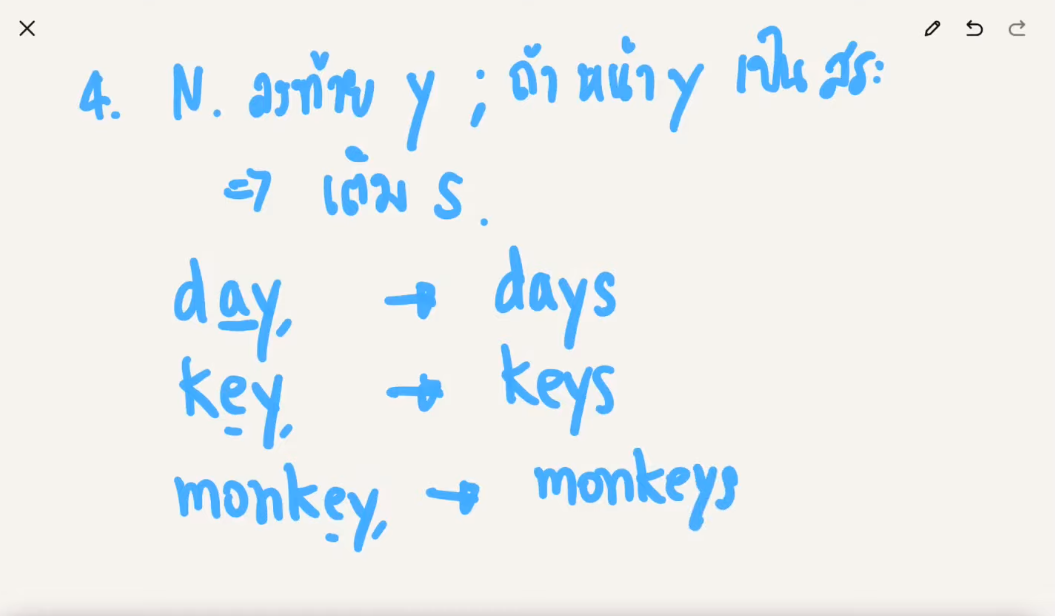 4. N. ลงท้าย y ; ถ้า หน้า y เป็น สระ
⇒ เติม s.
day, → days
key, → keys
monkey, → monkeys